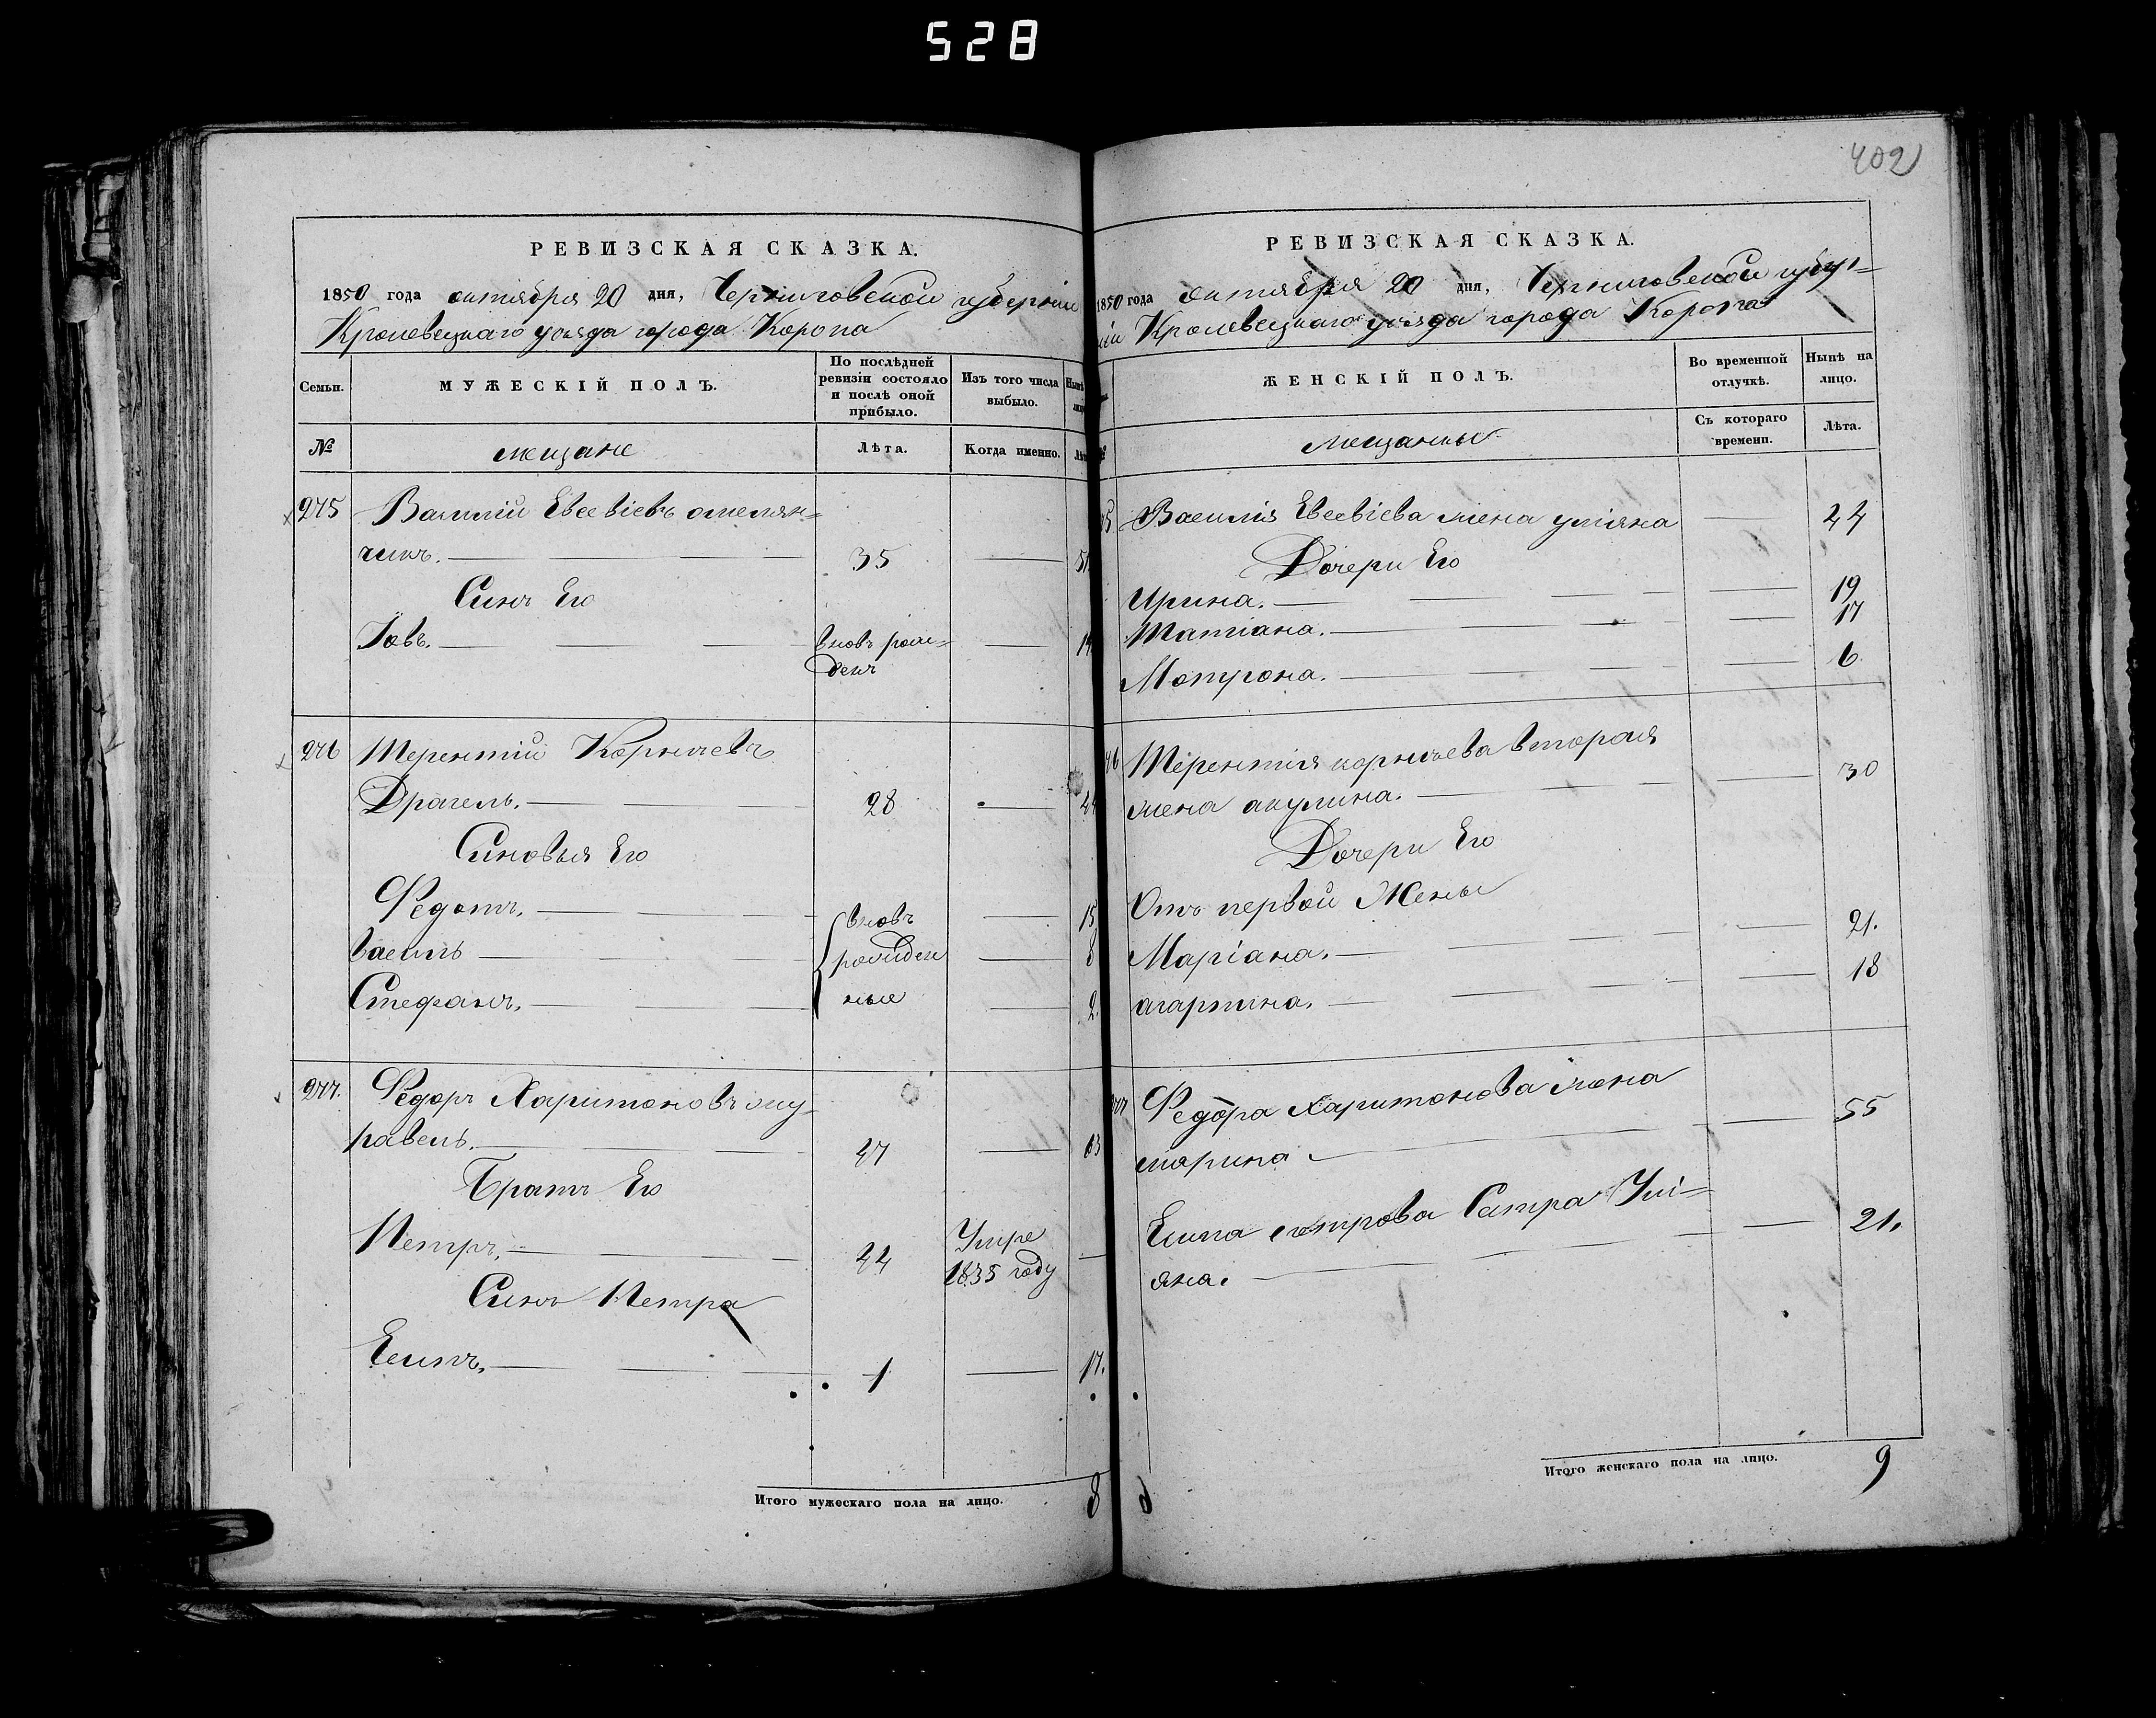 528
402
РЕВИЗСКАЯ СКАЗКА.
1850 года октября 20 дня, Черниговской губернии
Кролевецкаго уезда города Коропа
Семьи.
МУЖЕСКІЙ ПОЛЪ.
По послѣдней ревизіи состояло и послѣ оной прибыло.
Изъ того числа выбыло.
№
мещане
Лѣта.
Когда именно.
275 Василий Евсевіевъ омелян=
чикъ. — 35 — 51
Синъ Его
Іовъ. — вновь рож= — 14
денъ
276 Терентий Корнѣевъ
Драгель. — 28 — 44
Синовья Его
Федотъ. — вновь — 15
Василь — рожден — 8
Стефанъ. — ные — 2
277. Федоръ Харитоновъ жу=
равель. — 47 — 63
Братъ Его
Петръ. — 44 Умре —
1835 году
Синъ Петра
Есипъ. — 1 — 17.
Итого мужескаго пола на лицо. 8
РЕВИЗСКАЯ СКАЗКА.
1850 года октября 20 дня, Черниговской губер=
ніи Кролевецкаго уезда города Коропа
ЖЕНСКІЙ ПОЛЪ.
Во временной отлучкѣ.
Нынѣ на лицо.
мещанки
Съ котораго времени.
Лѣта.
Василія Евсевіева жена уліяна — 44
Дочери Его
Ирина. — 19
Татіана. — 17
Мотрона. — 6
Терентія корнѣева вторая
жена акулина. — 30
Дочери Его
Отъ первой Жены
Маріана. — 21.
агарпина. — 18
Федора Харитонова жена
марина — 55
Есипа петрова Сестра Улі=
яна. — 21.
Итого женскаго пола на лицо. 9